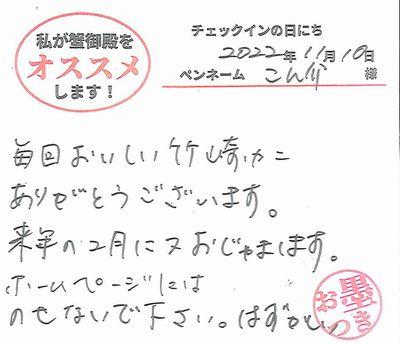 私が蟹御殿を
オススメ
します！
チェックインの日にち
2022年 11月 10日
ペンネーム こん 様
毎回おいしい竹崎カニ
ありがとうございます。
来年の2月に又おじゃまします。
ホームページには
のせないで下さい。はずかしい
お墨つき